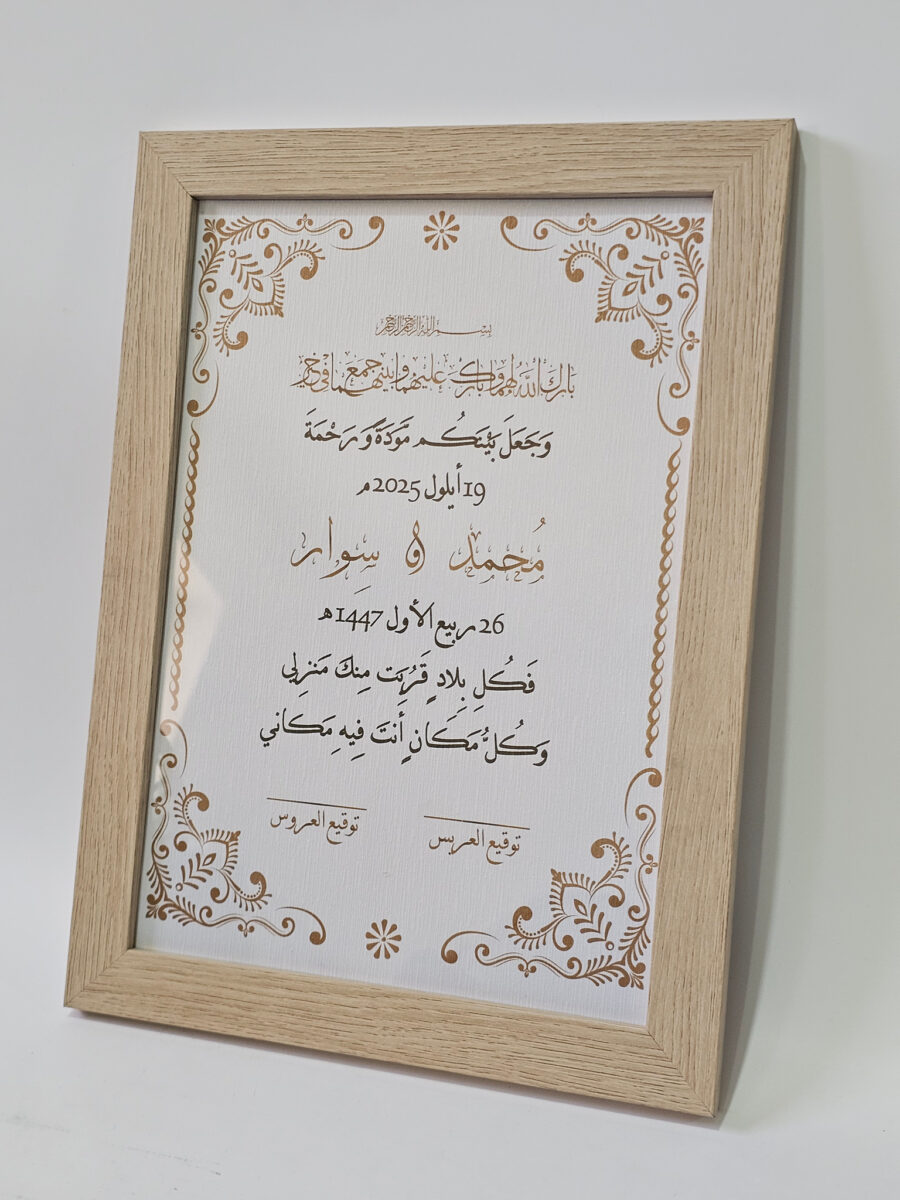 بسم الله الرحمن الرحيم
بَارَكَ اللهُ لَهُمَا وَبَارَكَ عَلَيْهِمَا وَجَمَعَ بَيْنَهُمَا فِي خَيْر
وَجَعَلَ بَيْنَكُم مَّوَدَّةً وَرَحْمَةً
19 أيلول 2025م
مُحمد و سِوار
26 ربيع الأول 1447ه
فَكُلِ بِلادٍ قَرُبَت مِنكَ مَنزِلي
وَكُلُّ مَكَانٍ أَنتَ فِيهِ مَكَاني
توقيع العريس
توقيع العروس